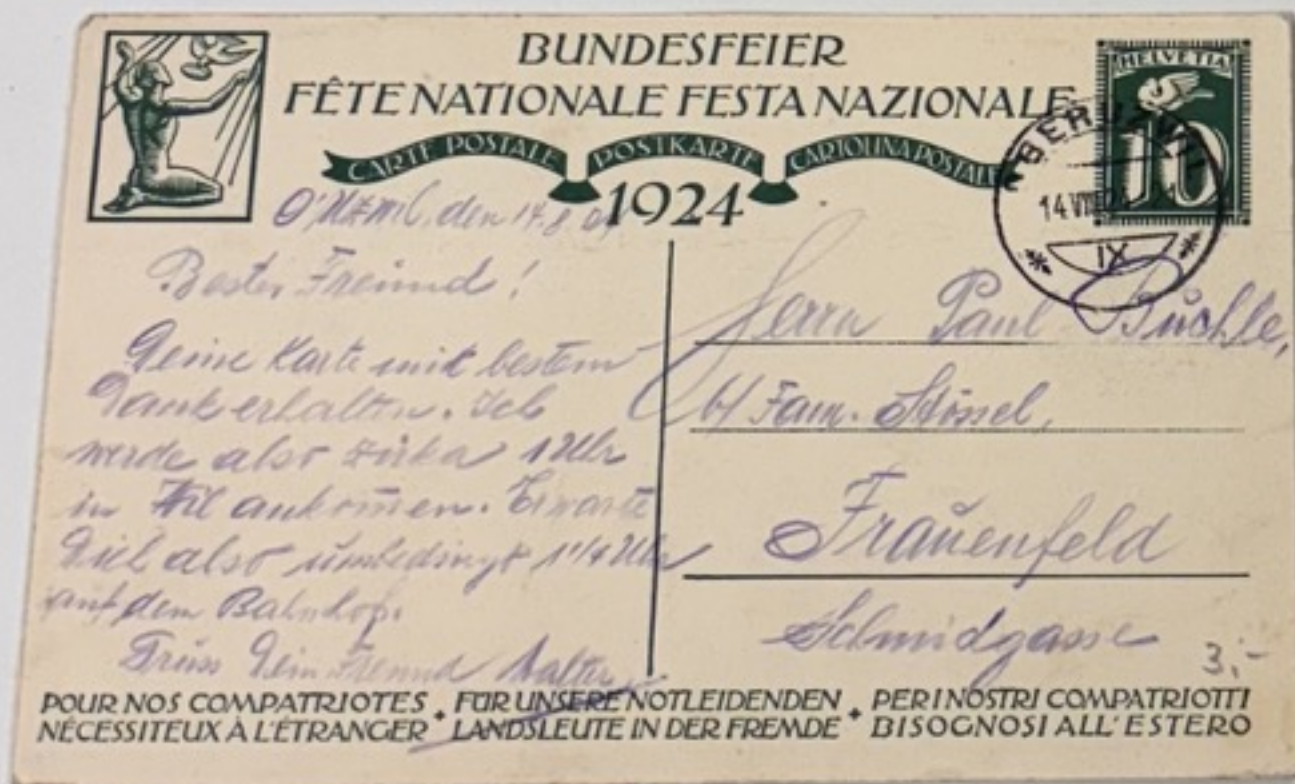 BUNDESFEIER
FÊTE NATIONALE FESTA NAZIONALE
CARTE POSTALE POSTKARTE CARTOLINA POSTALE
1924
HELVETIA
10
14 VIII
IX
O'Uzwil, den 14.8.24
Bester Freund!
Deine Karte mit bestem
Dank erhalten. Ich
werde also zirka 1 Uhr
in Wil ankommen. Erwarte
Dich also unbedingt 1 1/4 Uhr
auf dem Bahnhof.
Gruss Dein Freund Walter
Herrn Paul Büchle,
b/ Fam. Stössel,
Frauenfeld
Schmidgasse
3,-
POUR NOS COMPATRIOTES • FÜR UNSERE NOTLEIDENDEN • PER I NOSTRI COMPATRIOTTI
NÉCESSITEUX À L'ÉTRANGER LANDSLEUTE IN DER FREMDE BISOGNOSI ALL'ESTERO